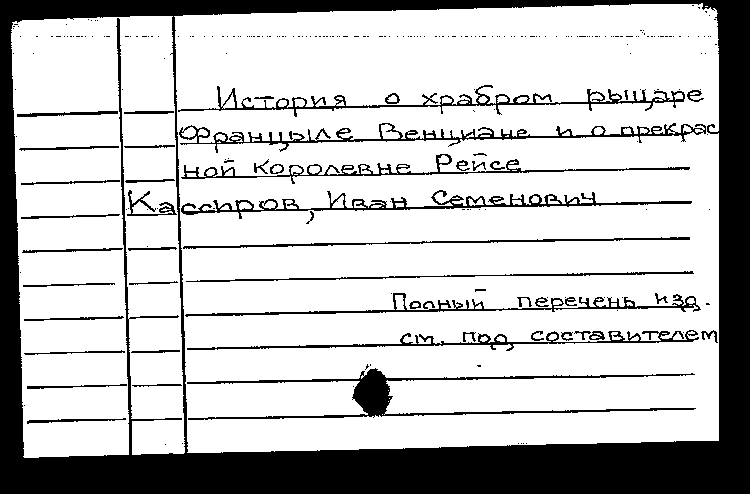 История о храбром рыцаре
Францыле Венциане и о прекрас
ной королевне Рейсе
Кассиров, Иван Семенович
Полный перечень изд.
см. под составителем